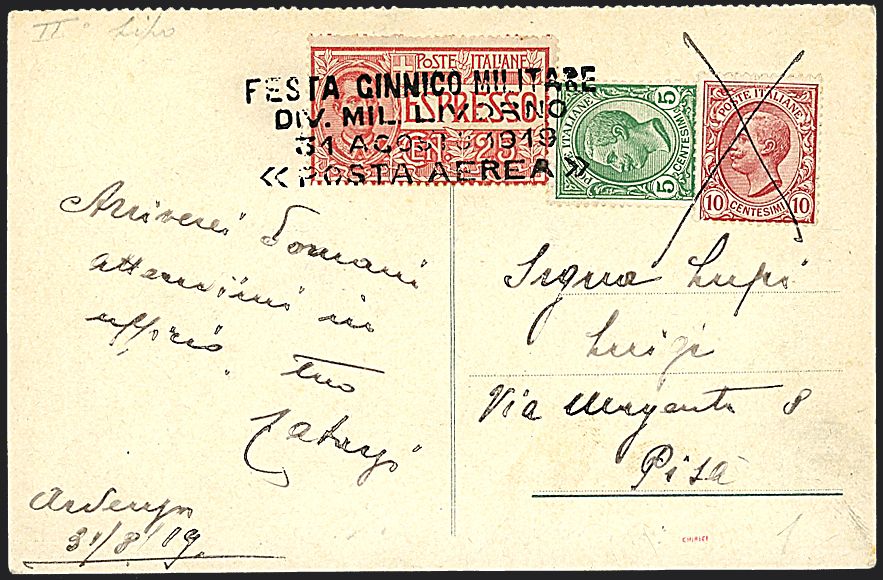 IIº tipo
POSTE ITALIANE
ESPRESSO
CENT. 25
FESTA GINNICO MILITARE
DIV. MIL. LIVORNO
31 AGOSTO 1919
« POSTA AEREA »
POSTE ITALIANE
5 CENTESIMI 5
POSTE ITALIANE
10 CENTESIMI 10
Arriverei domani
attendimi in
ufficio. tuo
Ardenza
31/8/19.
Signor Lupi
Luigi
Via Magenta 8
Pisa
CHIRICI